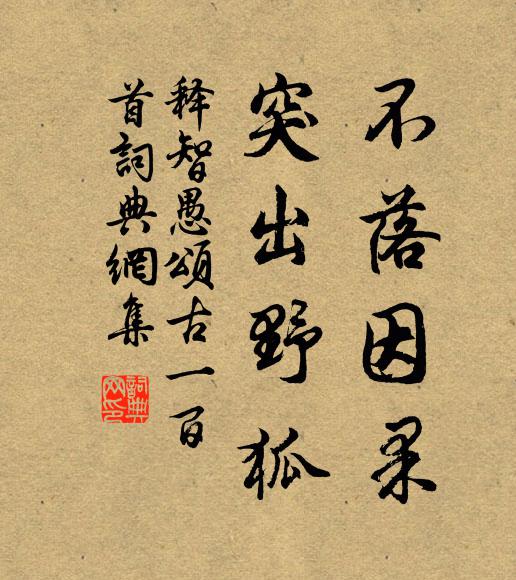 不落因果
突出野狐
释智愚頌古一百
首詞典網集
詞典
网印